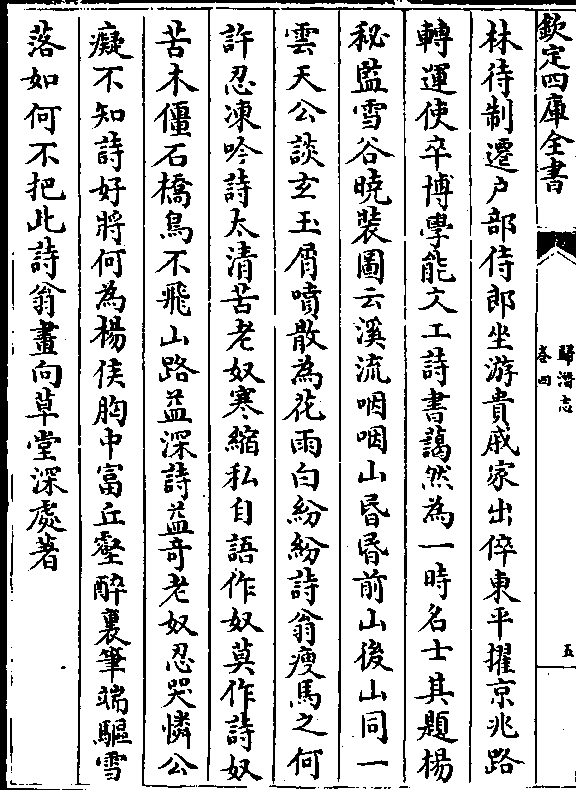 欽定四庫全書
歸潛志
卷四
五
林待制遷户部侍郎坐游貴戚家出倅東平擢京兆路
轉運使卒博學能文工詩書藹然為一時名士其題楊
秘監雪谷曉裝圖云溪流咽咽山昏昏前山後山同一
雲天公談玄玉屑噴散為花雨白紛紛詩翁瘦馬之何
許忍凍吟詩太清苦老奴寒縮私自語作奴莫作詩奴
苦木僵石橋鳥不飛山路益深詩益奇老奴忍哭憐公
癡不知詩好將何為楊侯胸中富丘壑醉裏筆端驅雪
落如何不把此詩翁畫向草堂深處著